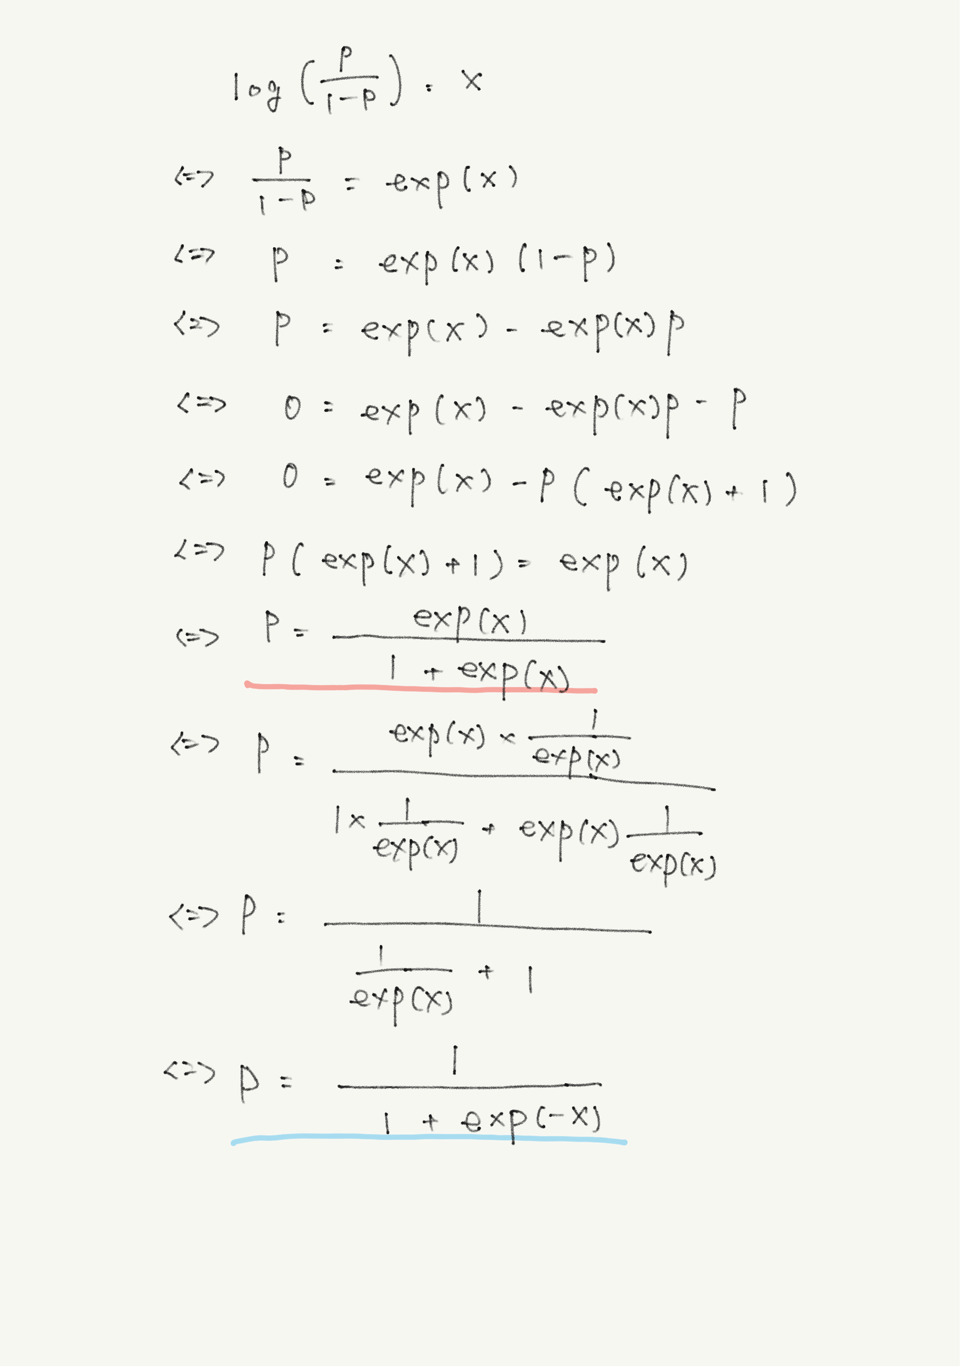 log (p/(1-p)) = x
<=> p/(1-p) = exp(x)
<=> p = exp(x) (1-p)
<=> p = exp(x) - exp(x)p
<=> 0 = exp(x) - exp(x)p - p
<=> 0 = exp(x) - p ( exp(x) + 1 )
<=> p ( exp(x) + 1 ) = exp(x)
<=> p = exp(x) / (1 + exp(x))
<=> p = (exp(x) × 1/exp(x)) / (1 × 1/exp(x) + exp(x) 1/exp(x))
<=> p = 1 / (1/exp(x) + 1)
<=> p = 1 / (1 + exp(-x))